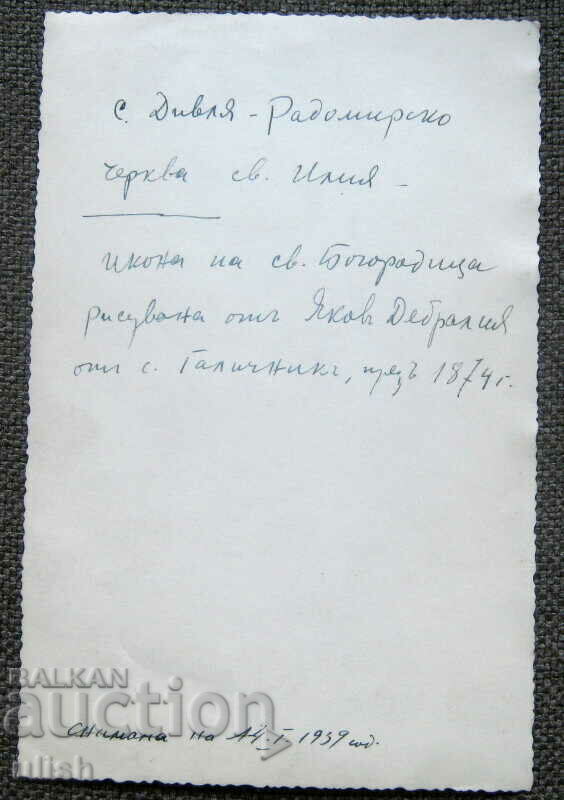 с. Дивля - Радомирско
черква св. Илия -
икона на св. Богородица
рисувана отъ Яковъ Дебралия
отъ с. Галичникъ, презъ 1874 г.
BALKAN
auction
снимана на 14. I. 1939 год.
mlish